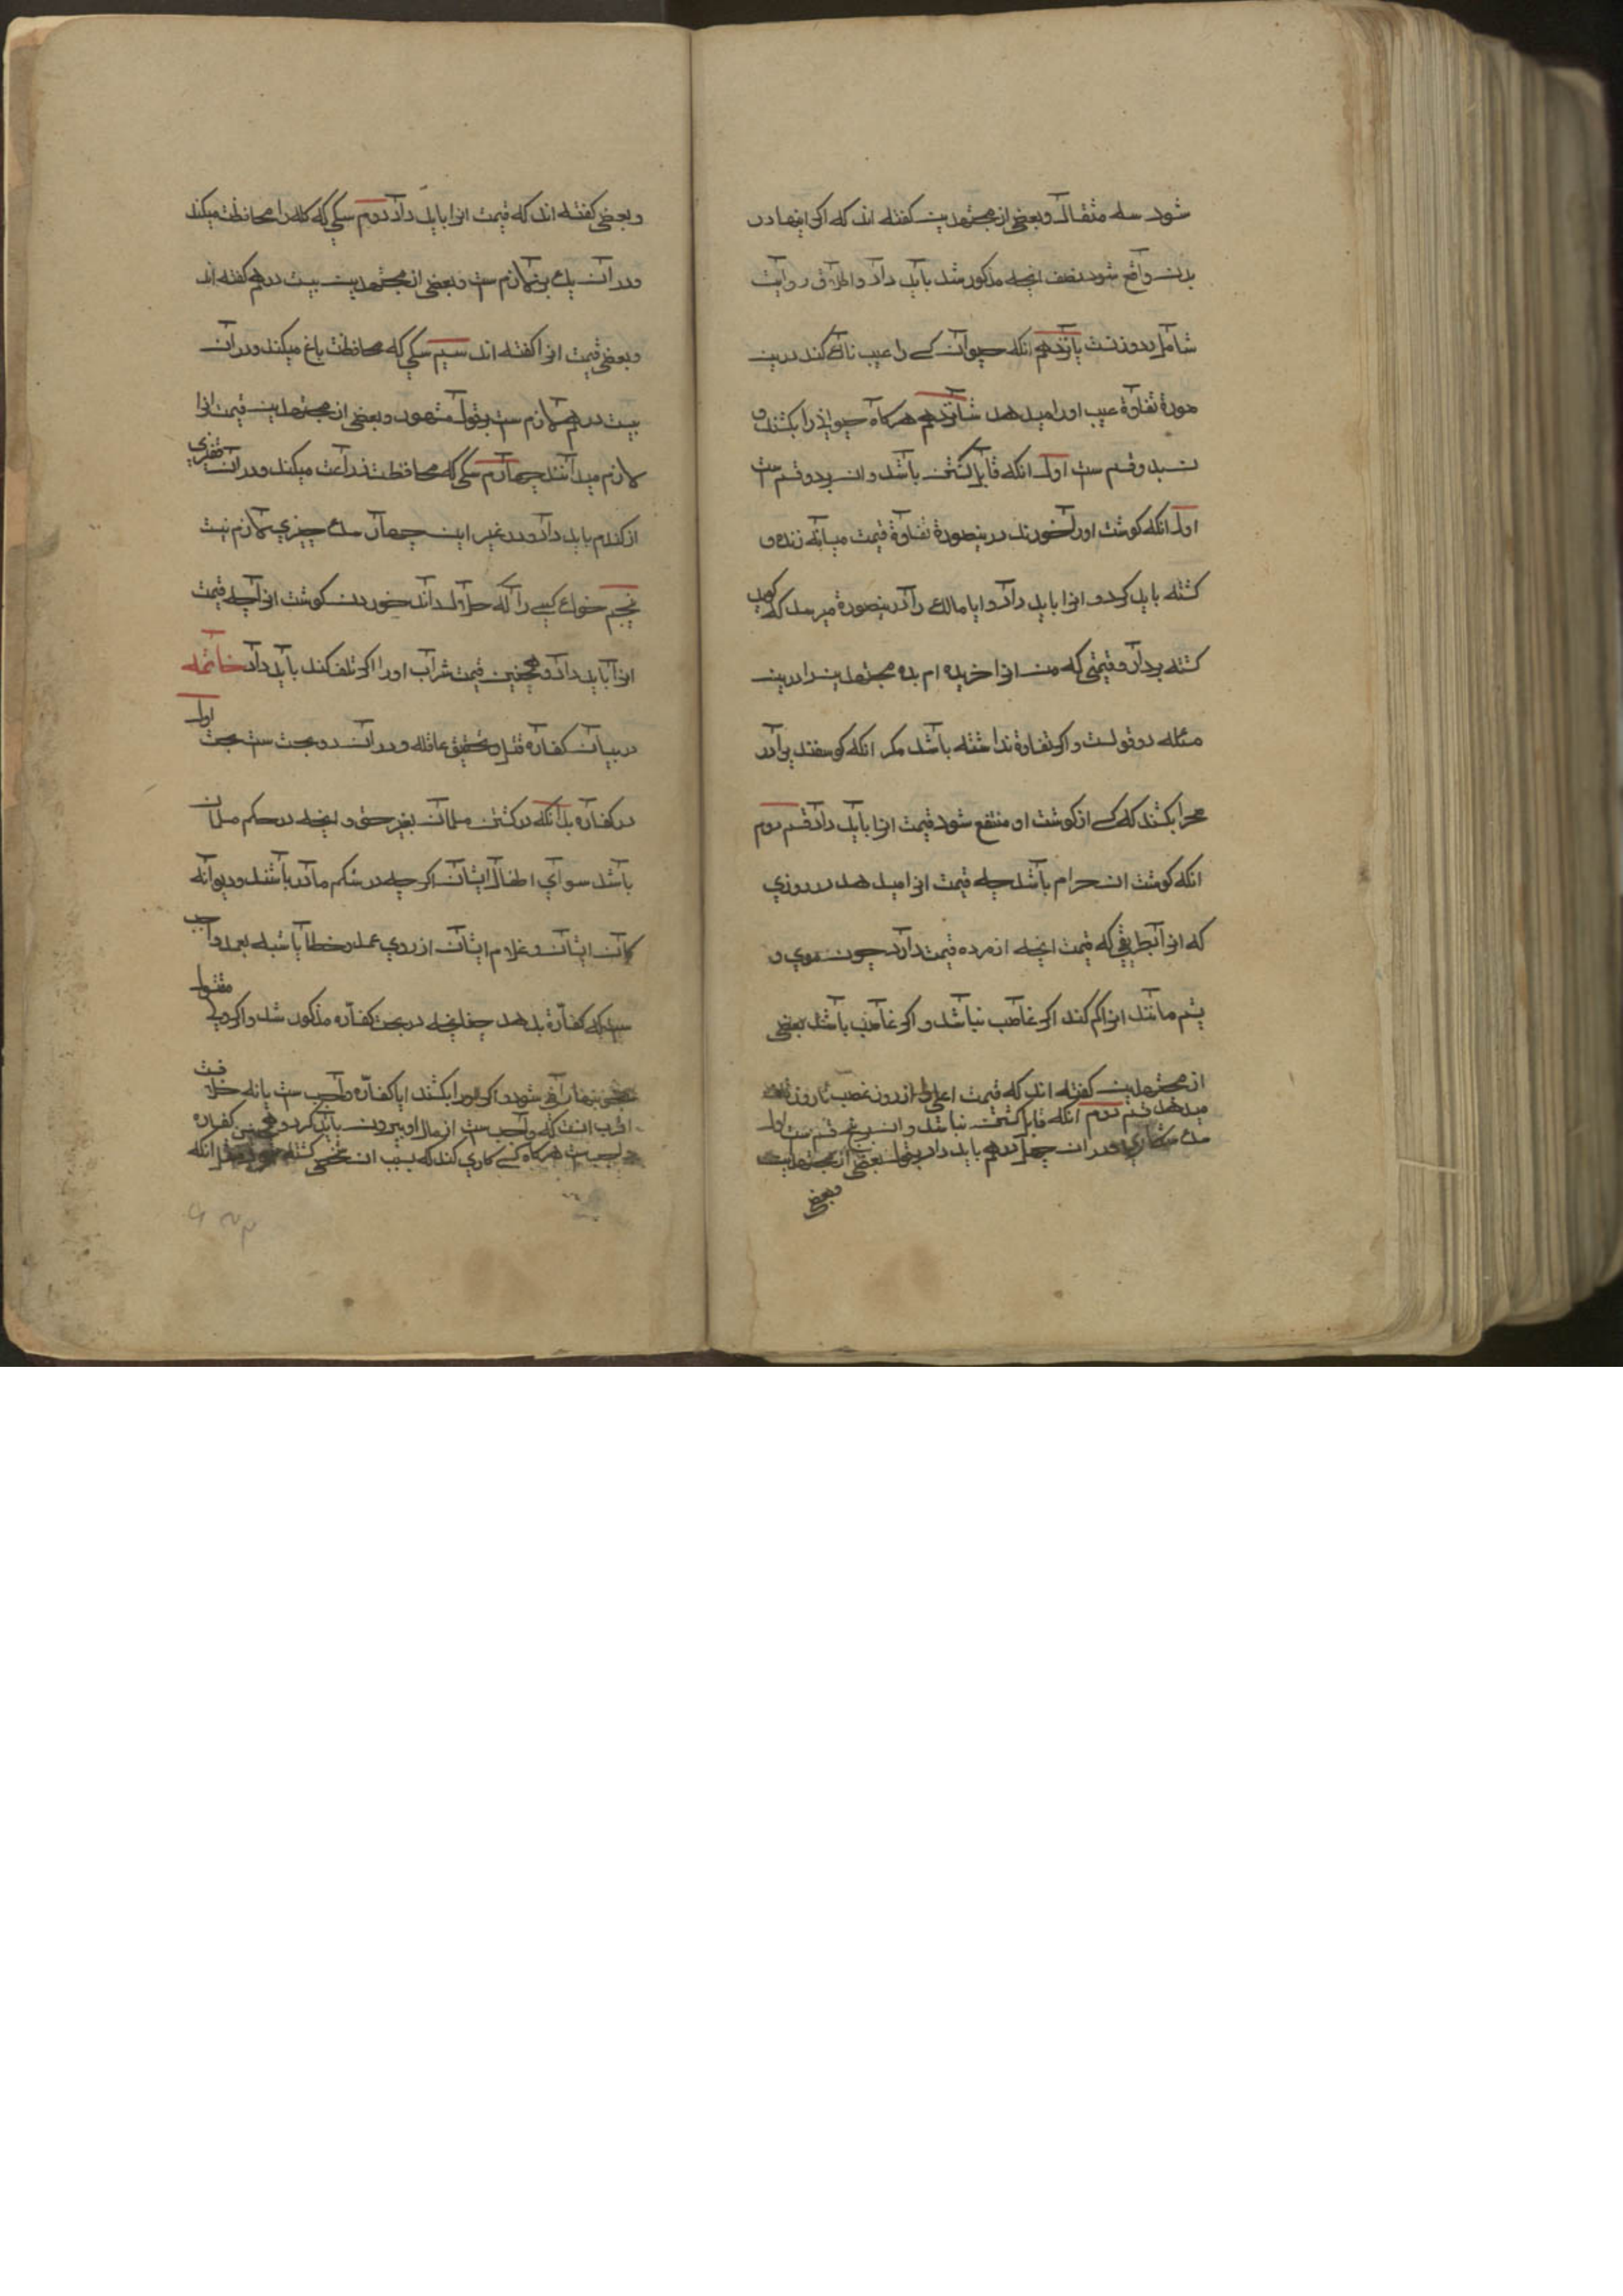 شود سه مثقال و بعضی از مجتهدین کفته اند که اکر اینها در
بدن واقع شود نصف انچه مذکور شد باید داد و اطلاق روایت
شامل بدو زنست پانزدهم انکه حیوان کسے را عیب ناک کند درین
صورة تفاوة عیب اورا میدهد شانزدهم هرکاه حیوانی را بکشند و
ان بدو قسم ست اول انکه قابل کشتن باشد و ان بدو قسم ست
اول انکه کوشت اورا خورند درینصورة تفاوة قیمت میانه زنده و
کشته باید کرد و انرا باید داد و ایا مالک را درینصورة میرسد که کوید
کشته بردار و قیمتی که من انرا خریده ام بده مجتهدین را درین
مسئله دو قولست و اکر تفاوة نداشته باشد مکر انکه کوسفند برادر
صحرا بکشند که کسے از کوشت او منتفع نشود قیمت انرا باید داد قسم دوم
انکه کوشت ان حرام باشد چه قیمت انرا میدهد در روزی
که انرا بطریقی که قیمت انچه از مرده قیمت دارد چون موی و
پشم مانند انرا کم کند اکر غاصب نباشد و اکر غاصب باشد بعضی
از مجتهدین کفته اند که قیمت اعلی از روز غصب تا روز تلف
میدهد قسم دوم انکه قابل کشتن نباشد و ان پنج قسم ست اول
سک شکاری و در ان چهل درهم باید داد بقول بعضی از مجتهدین
وبعضی
و بعضی کفته اند که قیمت انرا باید داد دوم سکی که کله را محافظت میکند
و در ان یک بز لازم ست و بعضی از مجتهدین بیست درهم کفته اند
و بعضی قیمت انرا کفته اند سیم سکی که محافظت باغ میکند و در ان
بیست درهم لازم ست بقول مشهور و بعضی از مجتهدین قیمت انرا
لازم میدانند چهارم سکی که محافظت زراعت میکند و در ان قفیزی
از کندم باید داد و در غیر این چهار سک چیزی لازم نیست
پنجم خوک کسے را که حلال داند خوردن کوشت انرا چه قیمت
انرا باید داد و همچنین قیمت شراب اورا اکر تلف کند باید داد خاتمه
در بیان کفاره قتل و تحقیق عاقله و در ان دو بحث ست بحث اول
در کفاره بدانکه در کشتن مسلمان بغیر حق و انچه در حکم مسلمان
باشد سوای اطفال ایشان اکر چه در شکم مادر باشند و دیوانه
کان ایشان و غلام ایشان از روی عمد و خطا یا شبه بعمد واجب
ست که کفاره بدهد چنانچه در بحث کفاره مذکور شد و اکر ولی مقتول
بخون بها راضی شود و اکر اورا بکشند ایا کفاره واجب ست یا نه خلافست
اقرب انست که واجب ست از مال او بیرون باید کرد و همچنین کفاره
واجب ست هرکاه کسے کاری کند که بسبب ان شخصی کشته شود مثل انکه